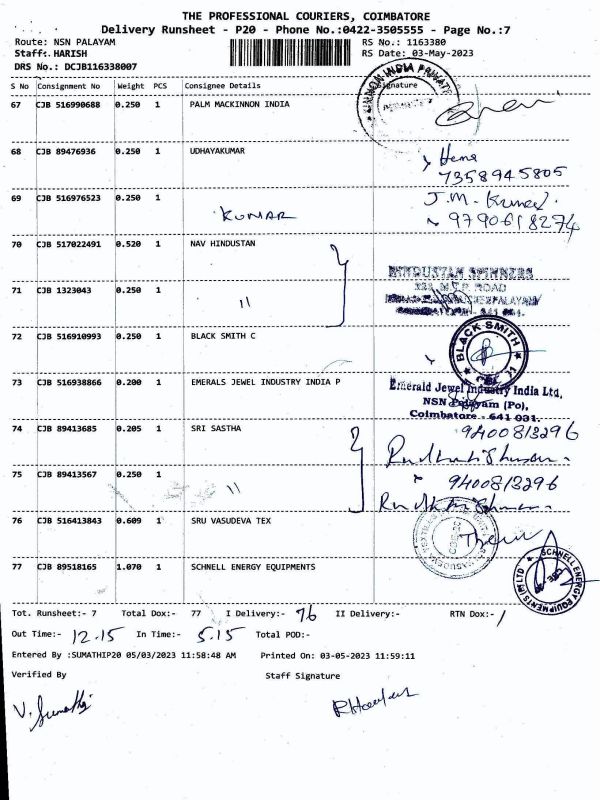 THE PROFESSIONAL COURIERS, COIMBATORE
Delivery Runsheet - P20 - Phone No.:0422-3505555 - Page No.:7
Route: NSN PALAYAM RS No.: 1163380
Staff: HARISH RS Date: 03-May-2023
DRS No.: DCJB116338007
S No Consignment No Weight PCS Consignee Details Signature
67 CJB 516990688 0.250 1 PALM MACKINNON INDIA
INDIA PRIVATE
68 CJB 89476936 0.250 1 UDHAYAKUMAR Hema
7358945805
69 CJB 516976523 0.250 1 KUMAR J.M. Kumar
9790618274
70 CJB 517022491 0.520 1 NAV HINDUSTAN
HINDUSTAN SPINNERS
71 CJB 1323043 0.250 1 11
72 CJB 516910993 0.250 1 BLACK SMITH C
BLACK SMITH
73 CJB 516938866 0.200 1 EMERALS JEWEL INDUSTRY INDIA P
Emerald Jewel Industry India Ltd,
NSN Palayam (Po),
Coimbatore - 641 031.
74 CJB 89413685 0.205 1 SRI SASTHA 9400813296
75 CJB 89413567 0.250 1 11 9400813296
76 CJB 516413843 0.609 1 SRU VASUDEVA TEX
77 CJB 89518165 1.070 1 SCHNELL ENERGY EQUIPMENTS
SCHNELL ENERGY EQUIPMENTS (P) LTD
Tot. Runsheet:- 7 Total Dox:- 77 I Delivery:- 76 II Delivery:- RTN Dox:- 1
Out Time:- 12.15 In Time:- 5.15 Total POD:-
Entered By :SUMATHIP20 05/03/2023 11:58:48 AM Printed On: 03-05-2023 11:59:11
Verified By Staff Signature
V. Sumathi